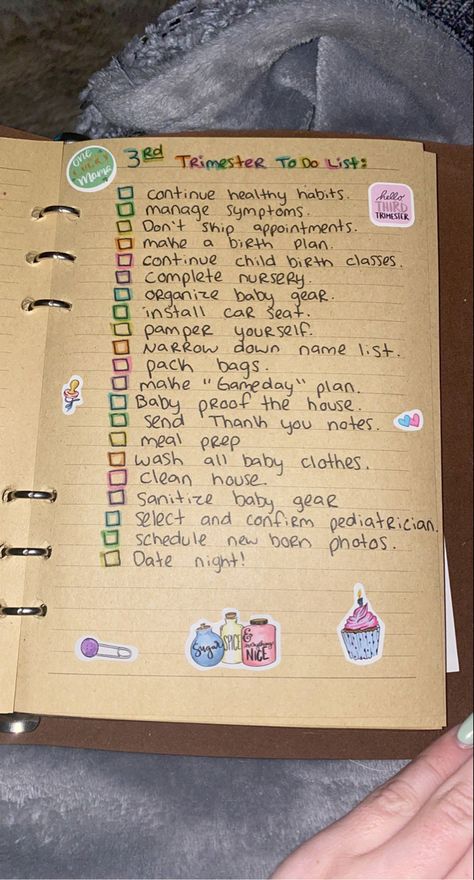 one
mama
3rd Trimester To Do List:
hello
THIRD
TRIMESTER
continue healthy habits.
manage symptoms.
Don't skip appointments.
make a birth plan.
continue child birth classes.
complete nursery.
organize baby gear.
install car seat.
pamper yourself.
Narrow down name list.
pack bags.
make "Gameday" plan.
Baby proof the house.
send Thank you notes.
meal prep
wash all baby clothes.
clean house.
sanitize baby gear
select and confirm pediatrician.
schedule new born photos.
Date night!
Sugar
SPICE
&
everything
NICE